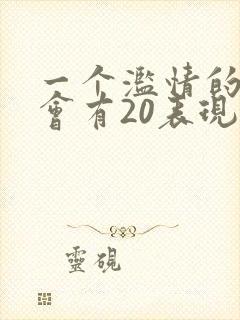 一个濫情的
會有20表現
靈硯